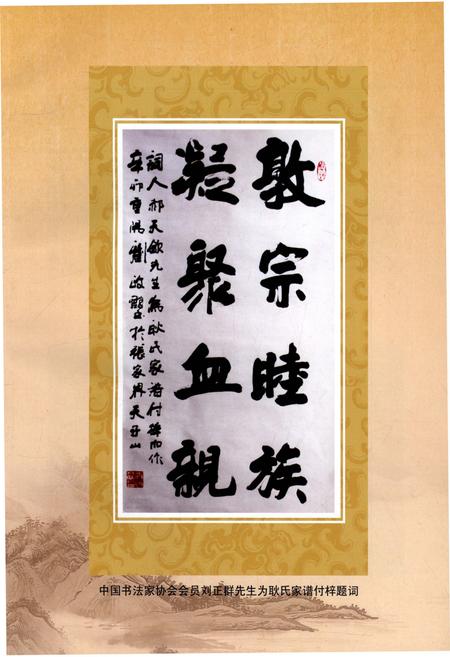 敦宗睦族
凝聚血親
詞人郝天欽先生為耿氏家譜付梓而作
辛卯重陽劉政羣書於張家界天子山
中国书法家协会会员刘正群先生为耿氏家谱付梓题词